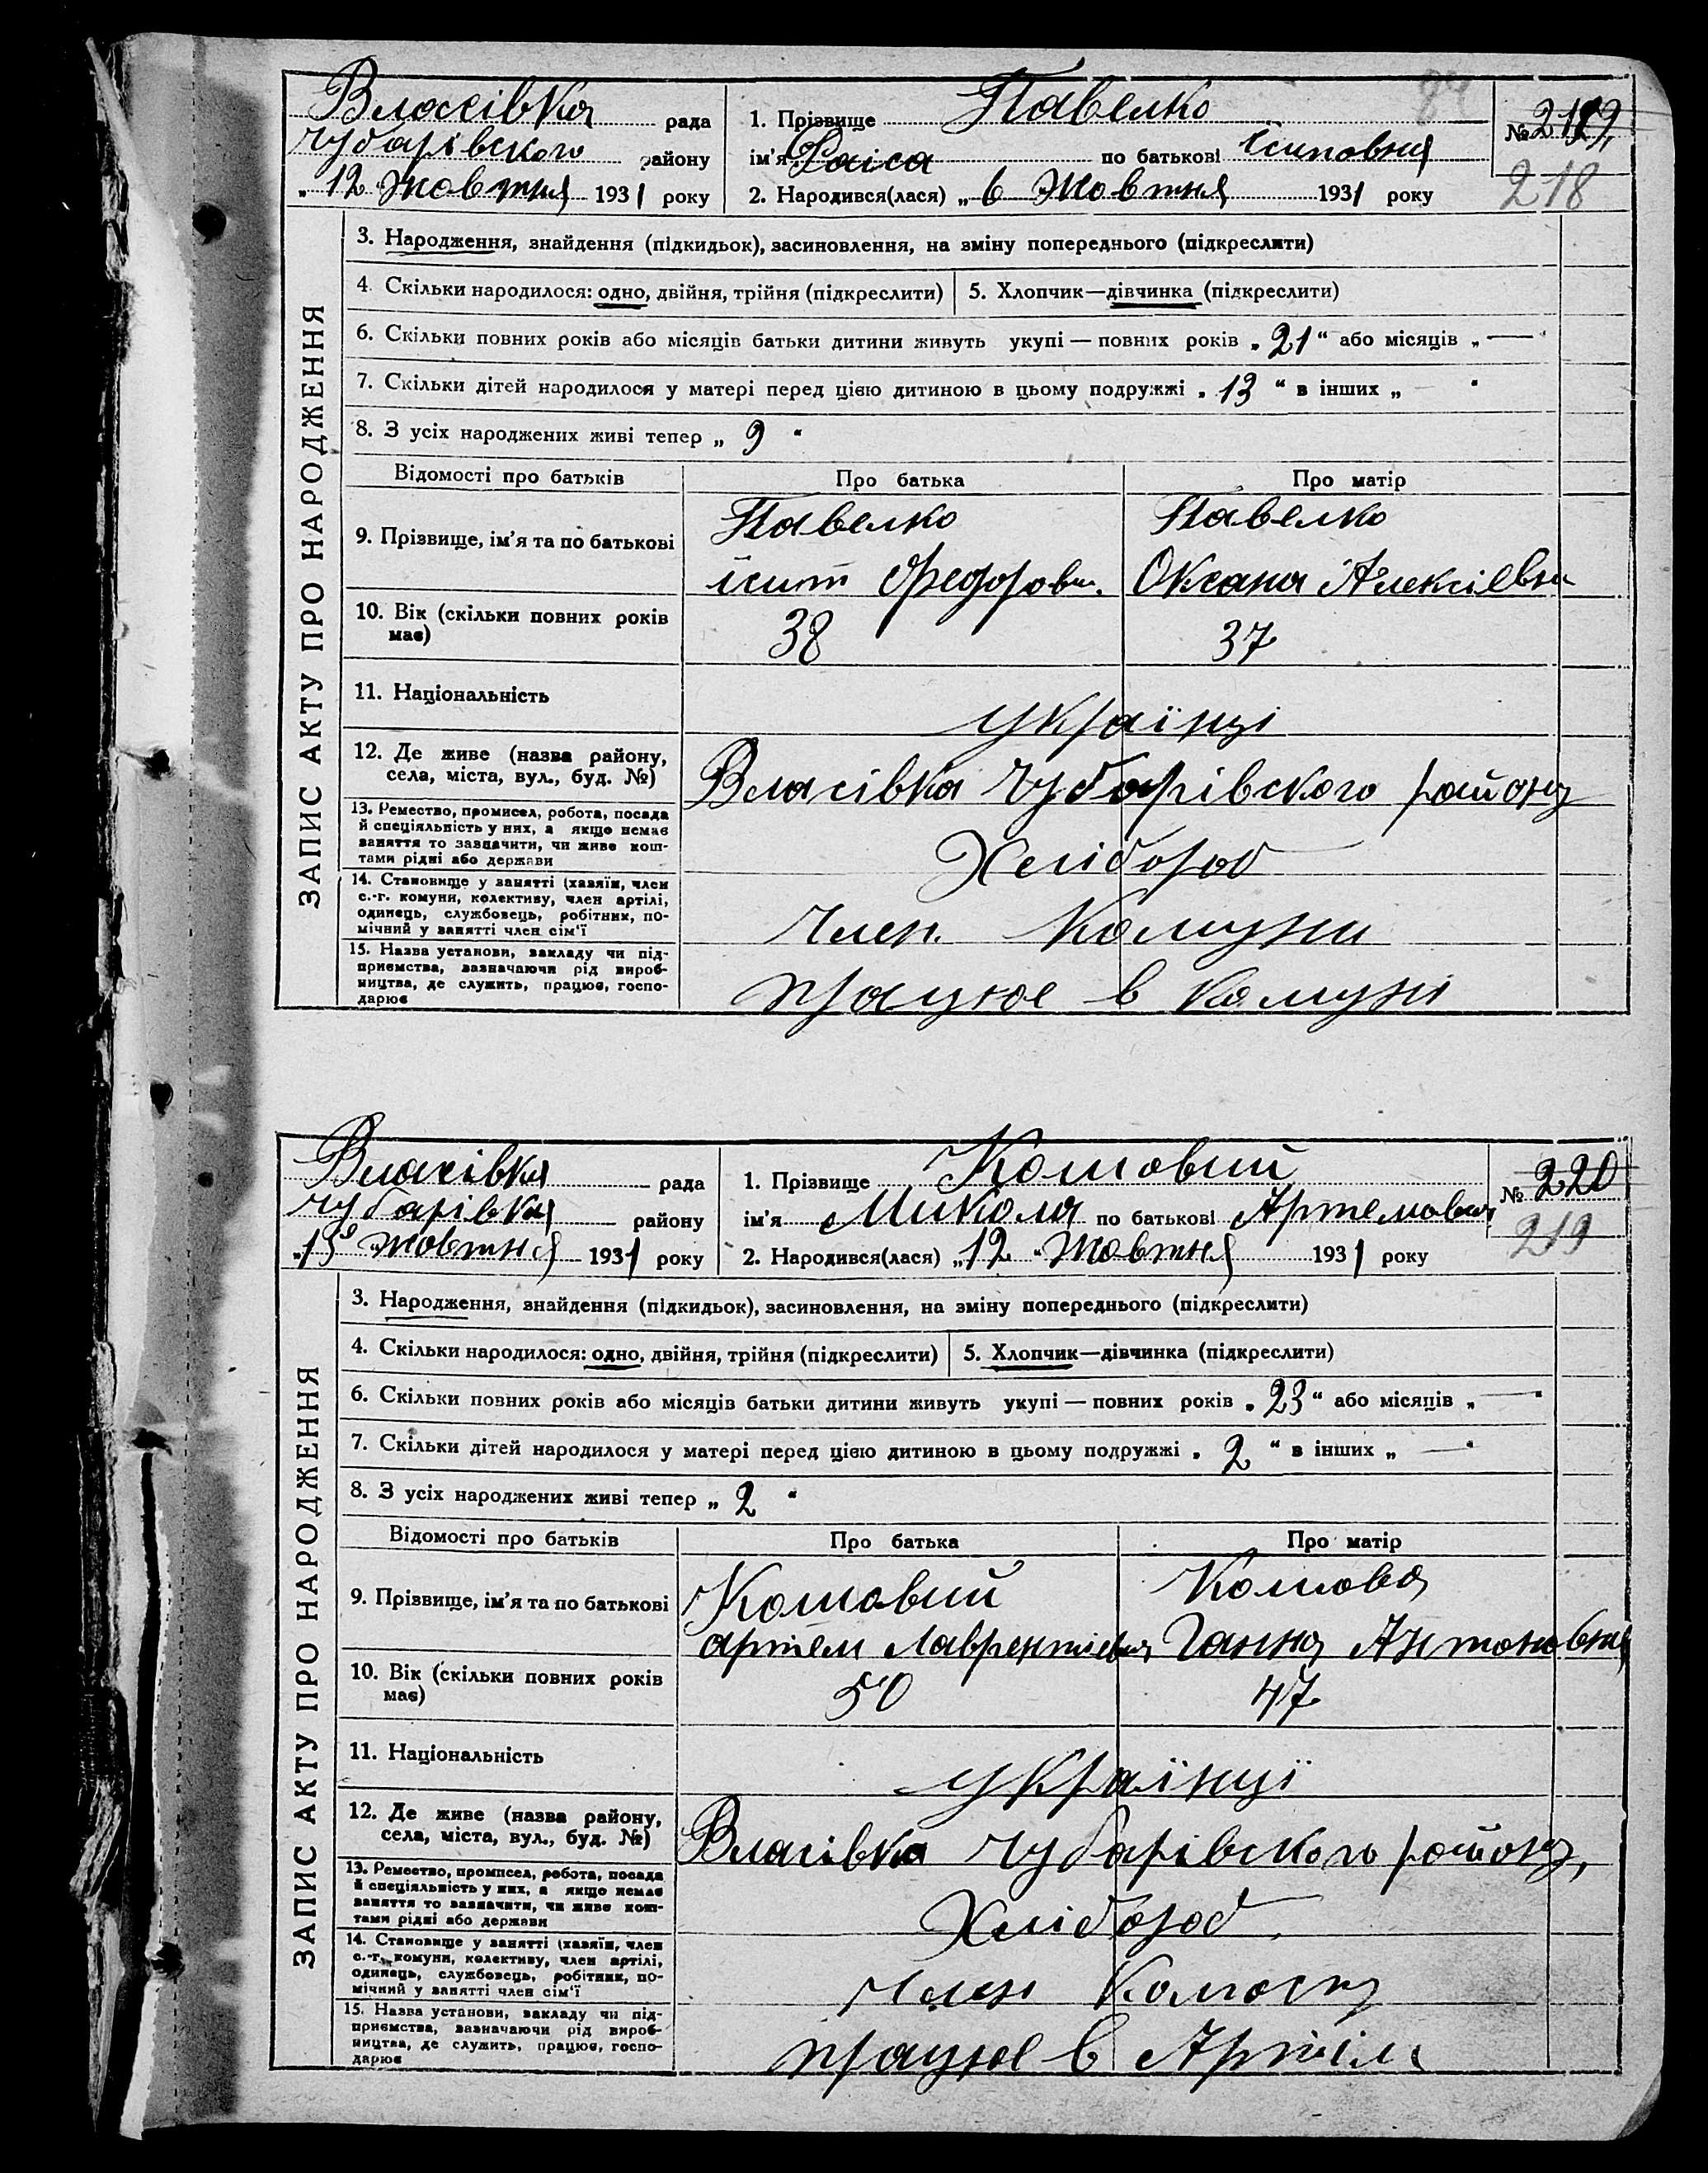 Власівка рада
Чубарівского району
„12 Жовтня 1931 року
1. Прізвище Павелко
ім'я Раїса по батькові Їсиповня
2. Народився(лася) „6 Жовтня 1931 року
№ 219
218
ЗАПИС АКТУ ПРО НАРОДЖЕННЯ
3. Народження, знайдення (підкидьок), засиновлення, на зміну попереднього (підкреслити)
4. Скільки народилося: одно, двійня, трійня (підкреслити) 5. Хлопчик—дівчинка (підкреслити)
6. Скільки повних років або місяців батьки дитини живуть укупі — повних років „21“ або місяців „—“
7. Скільки дітей народилося у матері перед цією дитиною в цьому подружжі „13“ в інших „—“
8. З усіх народжених живі тепер „9“
Відомості про батьків Про батька Про матір
9. Прізвище, ім'я та по батькові
Павелко Павелко
їсип Федоров. Оксана Алексіевна
10. Вік (скільки повних років має)
38 37
11. Національність
українці
12. Де живе (назва району,
села, міста, вул., буд. №)
Власівка Чубарівского району
13. Ремество, промисел, робота, посада
й спеціяльність у них, а якщо немає
заняття то зазначити, чи живе кош-
тами рідні або держави
Хлібороб
14. Становище у занятті (хазяїн, член
с.-г. комуни, колективу, член артілі,
одинець, службовець, робітник, по-
мічний у занятті член сім'ї
Член. Комуни
15. Назва установи, закладу чи під-
приємства, зазначаючи рід вироб-
ництва, де служить, працює, госпо-
дарює
працює в комуні
Власівка рада
Чубарівка району
„13 жовтня 1931 року
1. Прізвище Кошовий
ім'я Микола по батькові Артемович
2. Народився(лася) „12“ Жовтня 1931 року
№ 220
219
ЗАПИС АКТУ ПРО НАРОДЖЕННЯ
3. Народження, знайдення (підкидьок), засиновлення, на зміну попереднього (підкреслити)
4. Скільки народилося: одно, двійня, трійня (підкреслити) 5. Хлопчик—дівчинка (підкреслити)
6. Скільки повних років або місяців батьки дитини живуть укупі — повних років „23“ або місяців „—“
7. Скільки дітей народилося у матері перед цією дитиною в цьому подружжі „2“ в інших „—“
8. З усіх народжених живі тепер „2“
Відомості про батьків Про батька Про матір
9. Прізвище, ім'я та по батькові
Кошовий Кошова
артем Лаврентієв. Ганна Антоновна
10. Вік (скільки повних років
має)
50 47
11. Національність
українці
12. Де живе (назва району,
села, міста, вул., буд. №)
Власівка Чубарівского району,
13. Ремество, промисел, робота, посада
й спеціяльність у них, а якщо немає
заняття то зазначити, чи живе кош-
тами рідні або держави
Хлібороб
14. Становище у занятті (хазяїн, член
с.-г. комуни, колективу, член артілі,
одинець, службовець, робітник, по-
мічний у занятті член сім'ї
Член Колгоспу
15. Назва установи, закладу чи під-
приємства, зазначаючи рід вироб-
ництва, де служить, працює, госпо-
дарює
працює в Артіли